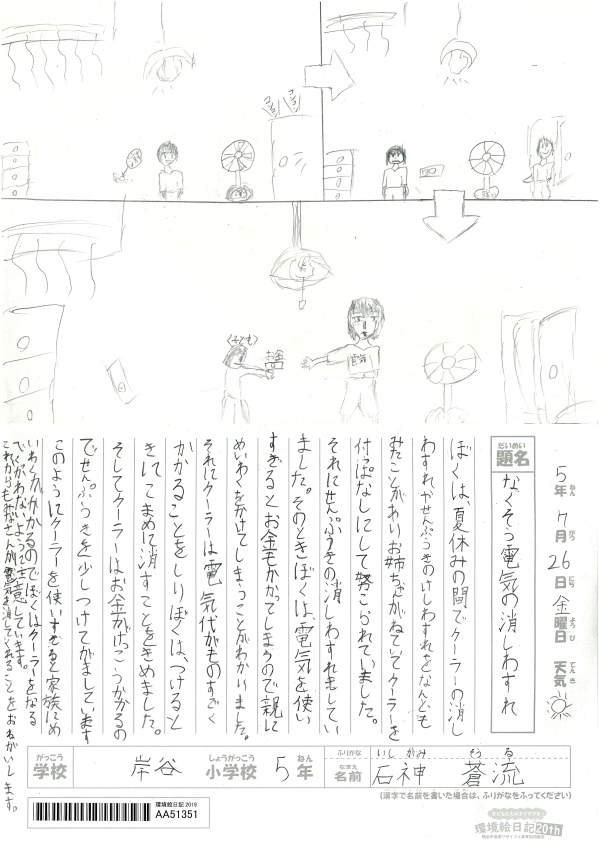 コンコン
〈子ども〉
お金
電気
5年7月26日金曜日 天気
ねん がつ にち ようび てんき
だいめい
題名
なくそう電気の消しわすれ
ぼくは、夏休みの間でクーラーの消し
わすれやせんぷうきのけしわすれをなんども
みたことがあり お姉ちゃんがねていてクーラーを
付っぱなしにして怒こられていました。
それにせんぷうきの消しわすれもしてい
ました。そのときぼくは、電気を使い
すぎるとお金もかかってしまうので親に
めいわくをかけてしまうことがわかりました。
それにクーラーは電気代がものすごく
かかることをしりぼくは、つけると
きにこまめに消すことをきめました。
そしてクーラーはお金がけっこうかかるの
でせんぷうきを少しつけてがましています
このようにクーラーを使いすぎると家族にめ
いわくがかかるのでぼくはクーラーをなる
べくつかわないように注意しています。
これからもみなさんが電気を消してくれることをおねがいします。
がっこう しょうがっこう ねん
学校 岸谷 小学校 5年
ふりがな いしがみ そうる
なまえ
名前 石神 蒼流
(漢字で名前を書いた場合は、ふりがなをふってください)
環境絵日記2019
AA51351
環境絵日記20th